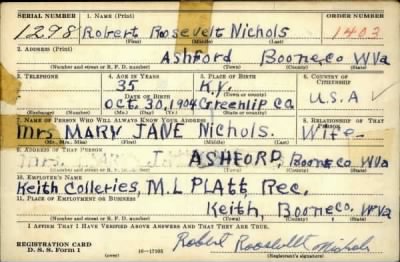 SERIAL NUMBER 1. NAME (Print) ORDER NUMBER
1298 Robert Roosevelt Nichols 1402
(First) (Middle) (Last)
2. ADDRESS (Print)
Ashford Boone Co WVa
(Number and street or R. F. D. number) (Town) (County) (State)
3. TELEPHONE 4. AGE IN YEARS 5. PLACE OF BIRTH 6. COUNTRY OF CITIZENSHIP
35 K.Y.
DATE OF BIRTH
Oct. 30, 1904 Greenlip Co U.S.A
(Exchange) (Number) (Mo.) (Day) (Yr.) (Town or county) (State or country)
7. NAME OF PERSON WHO WILL ALWAYS KNOW YOUR ADDRESS 8. RELATIONSHIP OF THAT PERSON
Mrs MARY JANE Nichols. Wife
(Mr., Mrs., Miss) (First) (Middle) (Last)
9. ADDRESS OF THAT PERSON
Mrs. ASHFORD, Boone Co WVa
(Number and street or R. F. D. number) (Town) (County) (State)
10. EMPLOYER'S NAME
Keith Colleries, M.L Platt Rec.
11. PLACE OF EMPLOYMENT OR BUSINESS
Keith, Boone Co. W.Va
(Number and street or R. F. D. number) (Town) (County) (State)
I AFFIRM THAT I HAVE VERIFIED ABOVE ANSWERS AND THAT THEY ARE TRUE.
REGISTRATION CARD
D. S. S. Form 1 16—17105 Robert Roosvellt Nichols
(Registrant's signature)